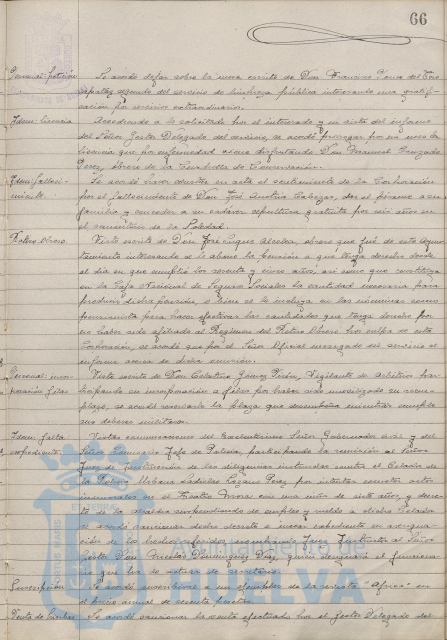 66
Personal: petición Se acordó dejar sobre la mesa escrito de Don Francisco
segundo del servicio de limpieza pública interesando una gratifi-
cación por servicios extraordinarios.
Idem: licencia Accediendo a lo solicitado por el interesado y en vista del informe
del Señor Gestor Delegado del servicio, se acordó prorrogar por un mes la
licencia que por enfermedad viene disfrutando Don Manuel
Perez, obrero de la Cuadrilla de Conservación.
Idem falleci- Se acordó hacer constar en acta el sentimiento de la Corporación
miento. por el fallecimiento de Don José dar el pésame a su
familia y conceder a su cadaver sepultura gratuita por seis años en
el cementerio de la Soledad.
Retiro Obrero. Visto escrito de Don José Luque obrero que fué de este Ayun-
tamiento interesando se le abone la pensión a que tenga derecho desde
el día en que cumplió los sesenta y cinco años, así como que constituya
en la Caja Nacional de Seguros Sociales la cantidad necesaria para
producir dicha pensión, o bien se le incluya en las nóminas como
pensionista para hacer efectivas las cantidades que tenga derecho por
no haber sido afiliado al Régimen del Retiro Obrero por culpa de esta
Corporación, se acordó que por el Señor Oficial encargado del servicio se
informe acerca de dicha cuestión.
Personal: incor- Visto escrito de Don Celestino Gómez Vigilante de Arbitrios par-
poración filas ticipando su incorporación a filas por haber sido movilizado su reem-
plazo, se acordó reservarle la plaza que desempeña mientras cumple
sus deberes militares.
Idem. falta Vistas comunicaciones del Excelentísimo Señor Gobernador civil y del
expediente. Señor Comisario Jefe de Policía, participando la remisión al Señor
Juez de Instrucción de las diligencias instruidas contra el Celador de
la Policía Urbana Ladislao Lozano Perez, por intentar cometer actos
inmorales en el Teatro Mora con una niña de siete años, y decre-
to de la Alcaldía suspendiendo de empleo y sueldo a dicho Celador
se acordó sancionar dicho decreto e incoar expediente en averigua-
ción de los hechos referidos, nombrando Juez Instructor al Señor
Gestor Don Nicolás Dominguez Díaz, quien designará el funciona-
rio que ha de actuar de secretario.
Suscripción Se acordó suscribirse a un ejemplar de la revista "Africa" en
el precio anual de sesenta pesetas.
Venta de Se acordó sancionar la venta efectuada por el Gestor Delegado del
Ayuntamiento de
HUELVA